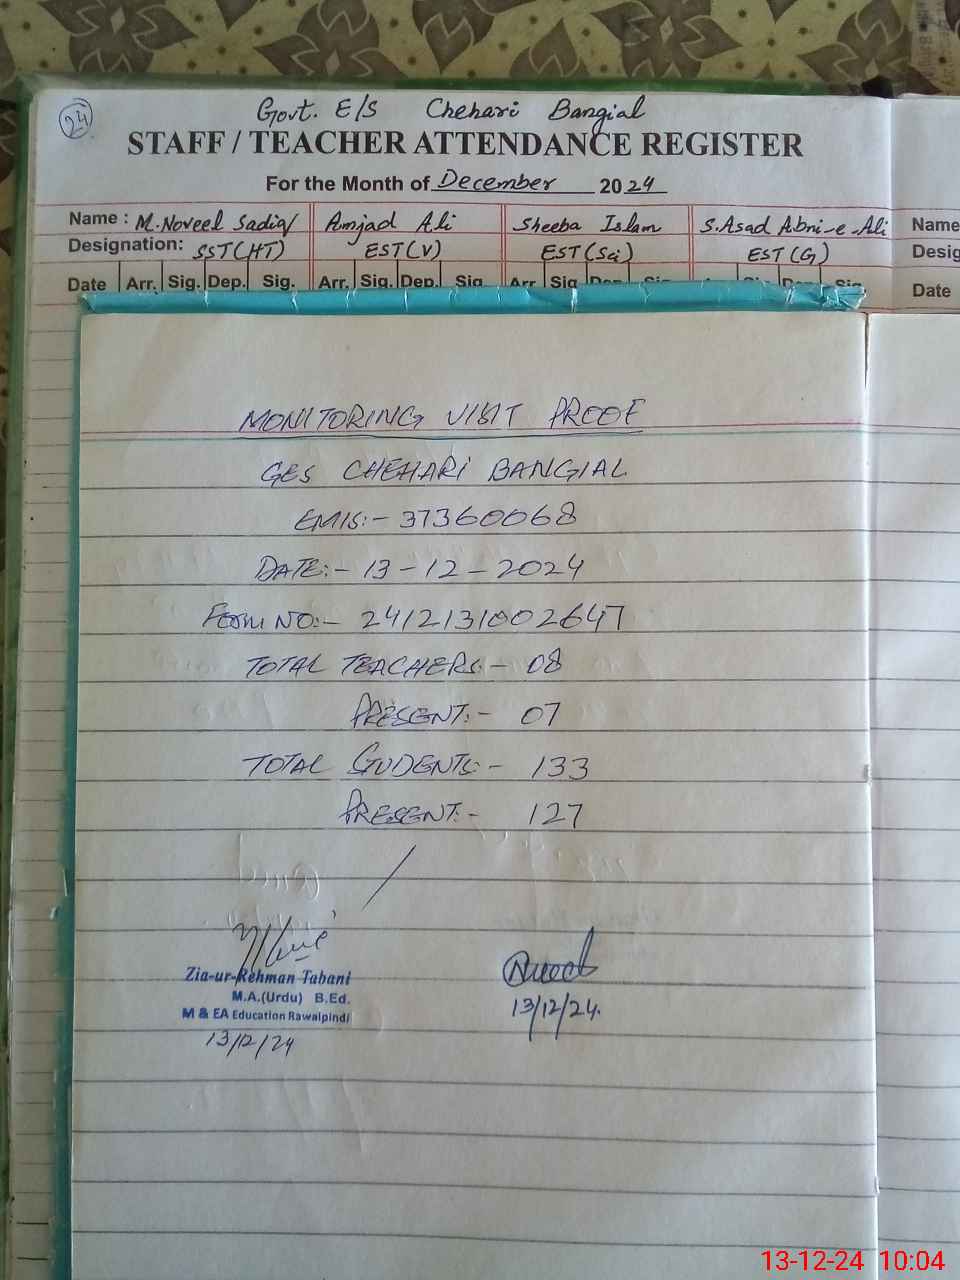 24
Govt. E/S Chehari Bangial
STAFF / TEACHER ATTENDANCE REGISTER
For the Month of December 2024
Name : M. Noveel Sadiq Amjad Ali Sheeba Islam S. Asad Abni-e-Ali Name
Designation: SST(HT) EST(V) EST(Sci) EST(G) Desig
Date Arr. Sig. Dep. Sig. Arr. Sig. Dep. Sig. Arr Sig Dep Sig Sig. Dep. Sig. Date
MONITORING VISIT PROOF
GES CHEHARI BANGIAL
EMIS:- 37360068
DATE:- 13-12-2024
Form NO:- 2412131002647
TOTAL TEACHERS:- 08
PRESENT:- 07
TOTAL STUDENTS:- 133
PRESENT:- 127
Zia-ur-Rehman Tabani
M.A.(Urdu) B.Ed.
M & EA Education Rawalpindi
13/12/24
13/12/24.
13-12-24 10:04